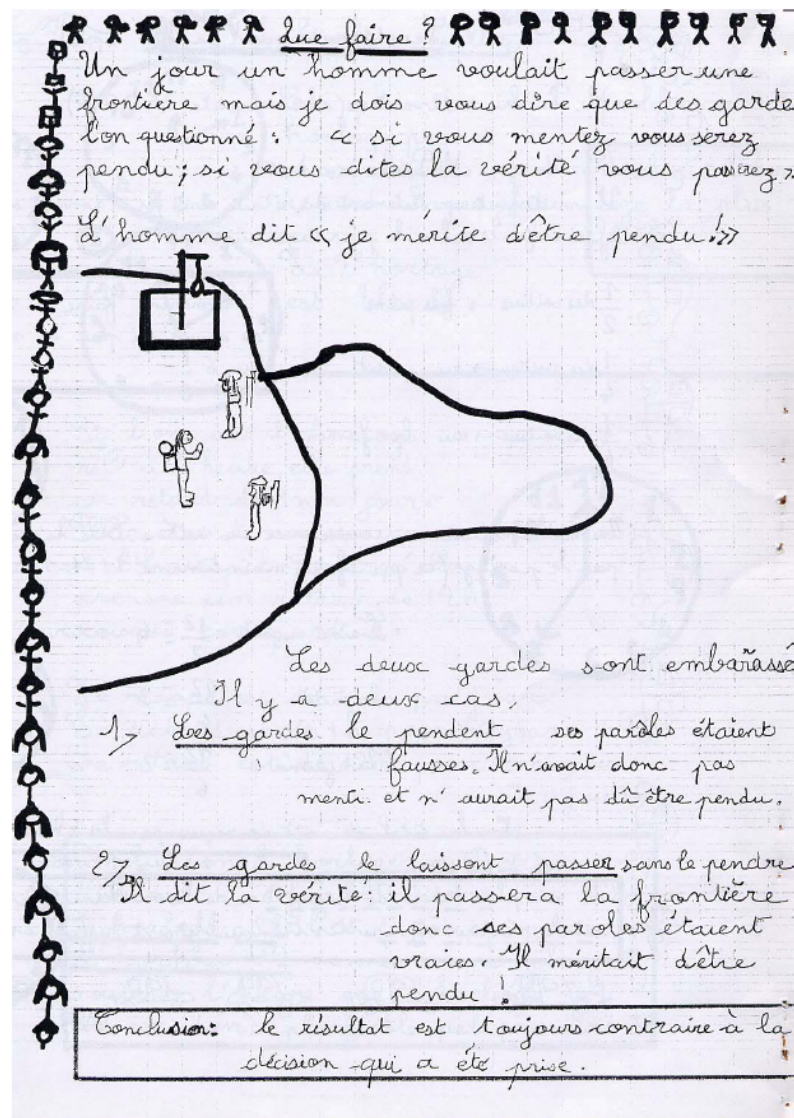 Que faire ?
Un jour un homme voulait passer une
frontière mais je dois vous dire que des garde
l'on questionné : « si vous mentez vous serez
pendu ; si vous dites la vérité vous passez »
L'homme dit « je mérite d'être pendu ! »
Les deux gardes sont embarassé
Il y a deux cas,
1> Les gardes le pendent ses paroles étaient
fausses. Il n'avait donc pas
menti. et n'aurait pas dû être pendu.
2> Les gardes le laissent passer sans le pendre
Il dit la vérité : il passera la frontière
donc ses paroles étaient
vraies. Il méritait d'être
pendu !
Conclusion : le résultat est toujours contraire à la
décision qui a été prise.